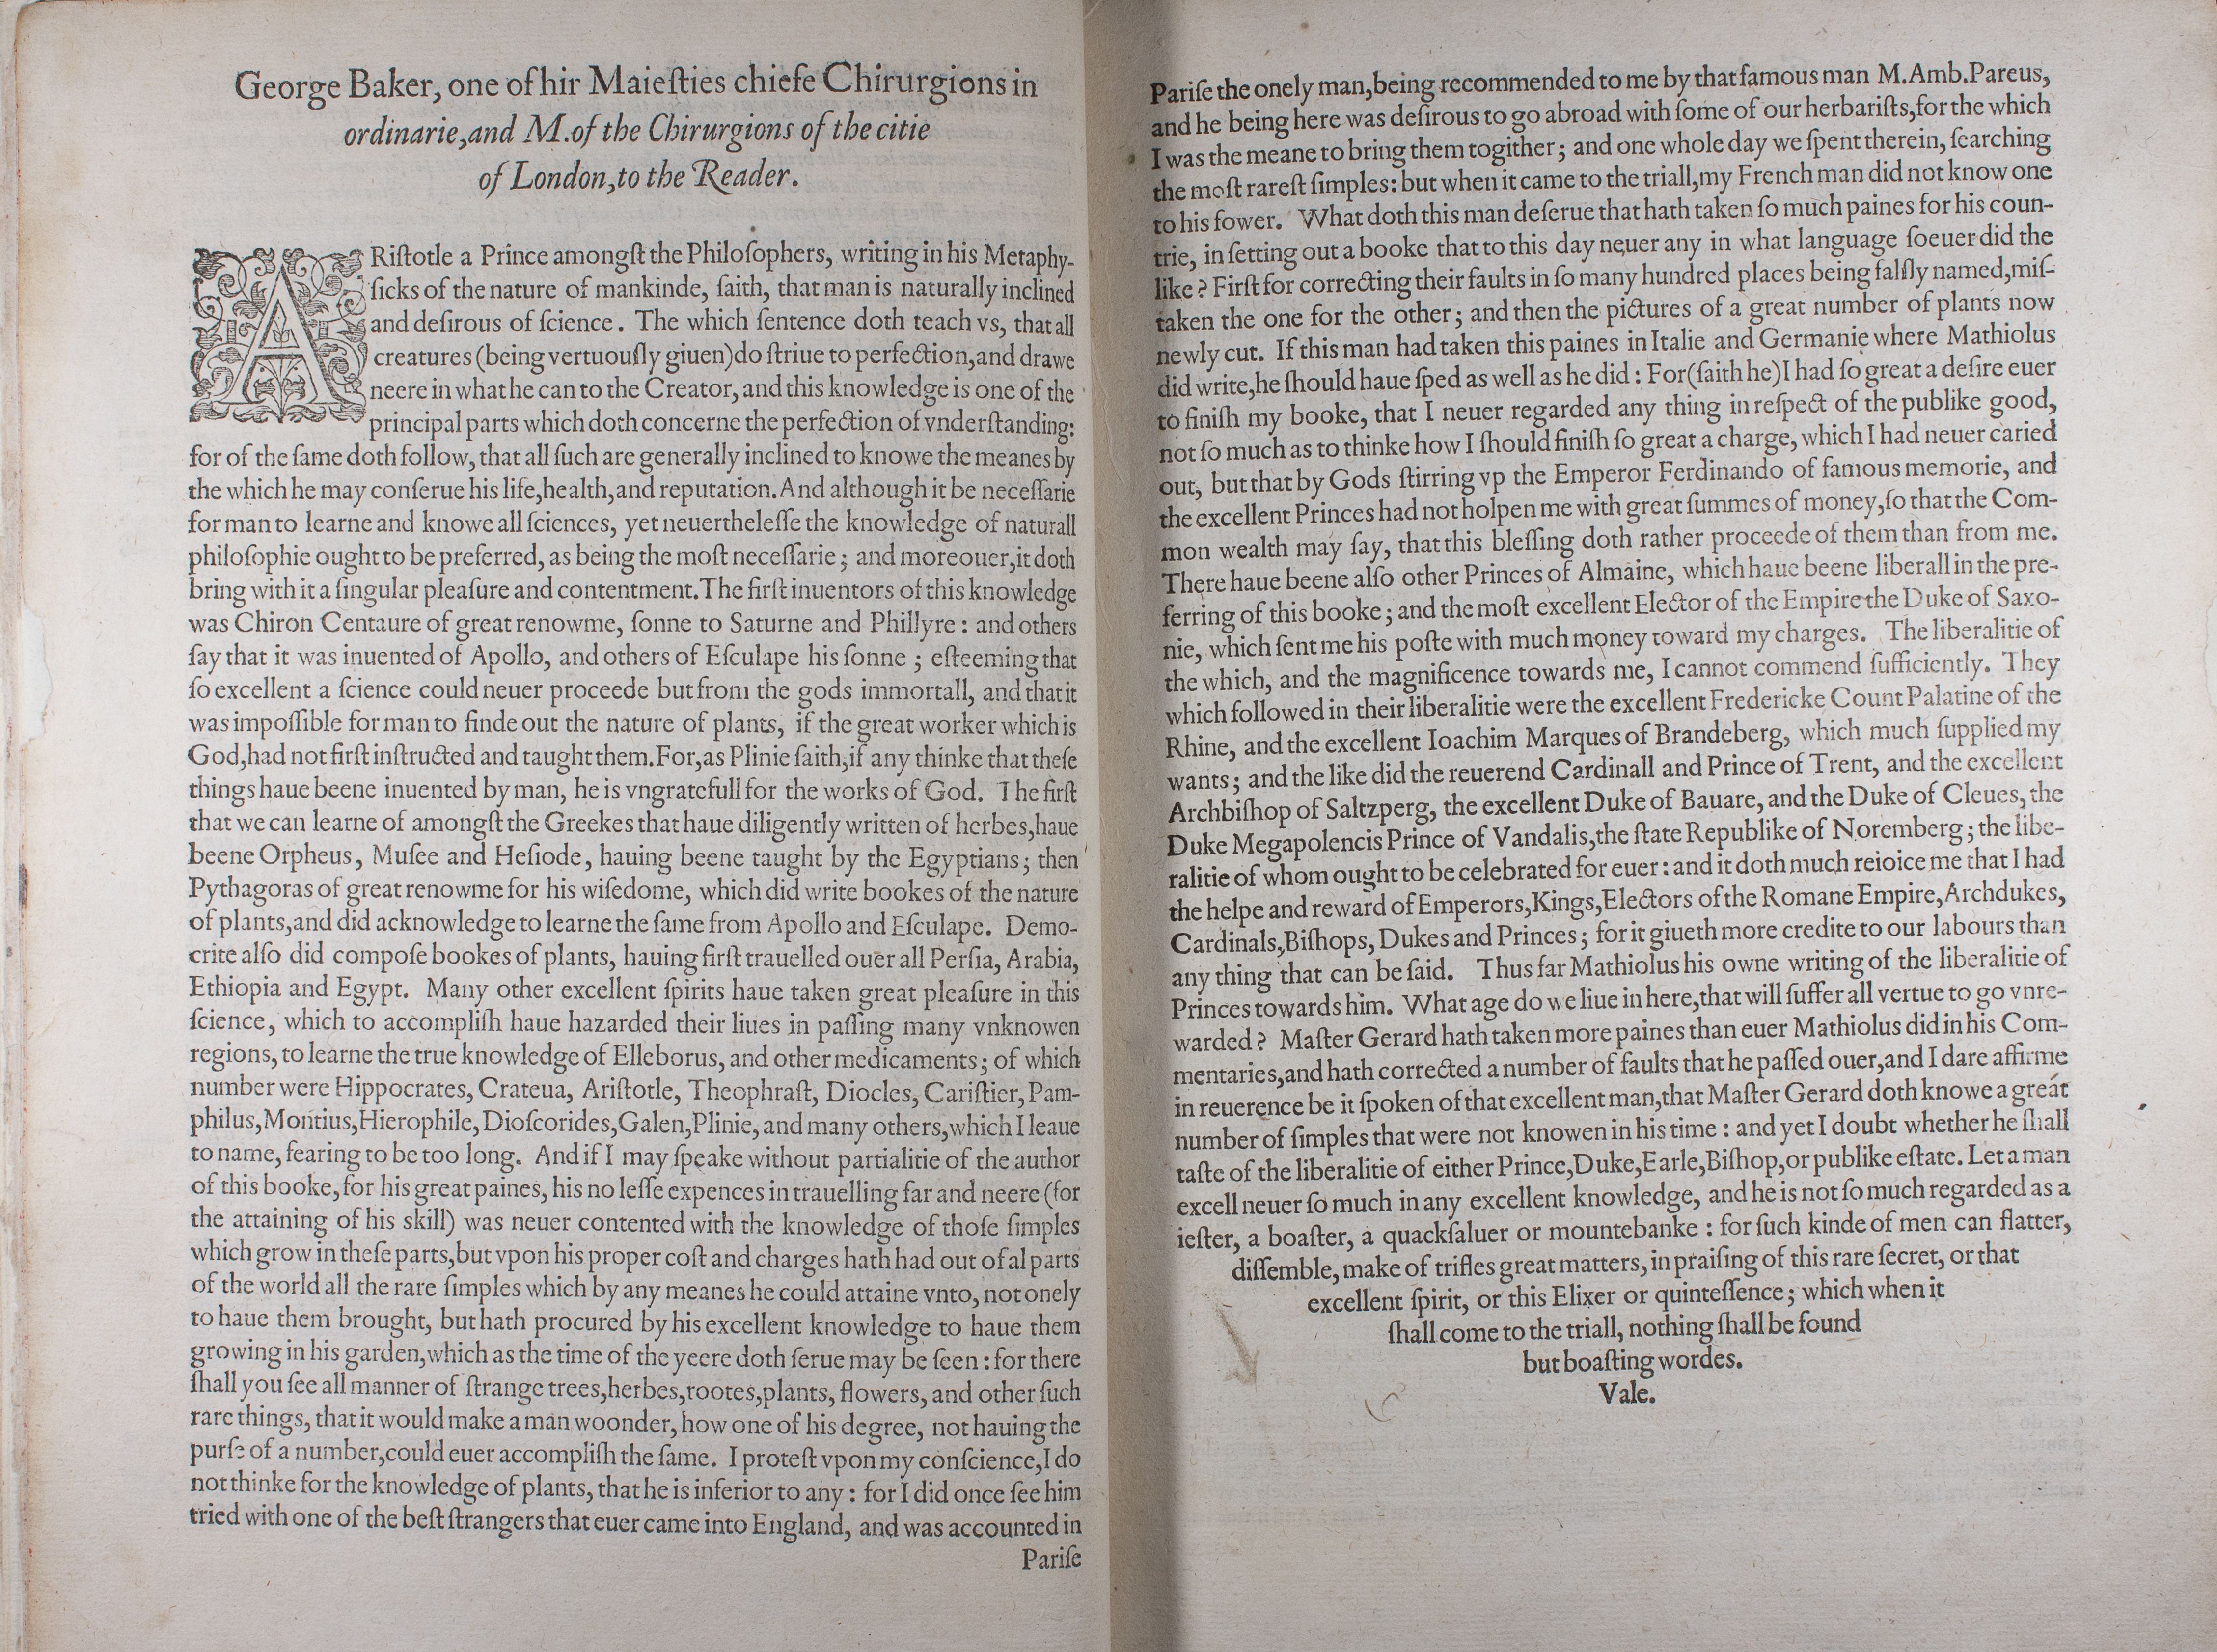 George Baker, one of hir Maieſties chiefe Chirurgions in
ordinarie,and M.of the Chirurgions of the citie
of London,to the Reader.
ARiſtotle a Prince amongſt the Philoſophers, writing in his Metaphy-
ſicks of the nature of mankinde, ſaith, that man is naturally inclined
and deſirous of ſcience. The which ſentence doth teach vs, that all
creatures (being vertuouſly giuen)do ſtriue to perfection,and drawe
neere in what he can to the Creator, and this knowledge is one of the
principal parts which doth concerne the perfection of vnderſtanding:
for of the ſame doth follow, that all ſuch are generally inclined to knowe the meanes by
the which he may conſerue his life,health,and reputation. And although it be neceſſarie
for man to learne and knowe all ſciences, yet neuertheleſſe the knowledge of naturall
philoſophie ought to be preferred, as being the moſt neceſſarie; and moreouer,it doth
bring with it a ſingular pleaſure and contentment. The firſt inuentors of this knowledge
was Chiron Centaure of great renowme, ſonne to Saturne and Phillyre: and others
ſay that it was inuented of Apollo, and others of Eſculape his ſonne; eſteeming that
ſo excellent a ſcience could neuer proceede but from the gods immortall, and that it
was impoſſible for man to finde out the nature of plants, if the great worker which is
God,had not firſt inſtructed and taught them. For,as Plinie ſaith,if any thinke that theſe
things haue beene inuented by man, he is vngratefull for the works of God. The firſt
that we can learne of amongſt the Greekes that haue diligently written of herbes,haue
beene Orpheus, Muſee and Heſiode, hauing beene taught by the Egyptians; then
Pythagoras of great renowme for his wiſedome, which did write bookes of the nature
of plants,and did acknowledge to learne the ſame from Apollo and Eſculape. Demo-
crite alſo did compoſe bookes of plants, hauing firſt trauelled ouer all Perſia, Arabia,
Ethiopia and Egypt. Many other excellent ſpirits haue taken great pleaſure in this
ſcience, which to accompliſh haue hazarded their liues in paſſing many vnknowen
regions, to learne the true knowledge of Elleborus, and other medicaments; of which
number were Hippocrates, Crateua, Ariſtotle, Theophraſt, Diocles, Cariſtier, Pam-
philus, Montius, Hierophile, Dioſcorides, Galen, Plinie, and many others, which I leaue
to name, fearing to be too long. And if I may ſpeake without partialitie of the author
of this booke, for his great paines, his no leſſe expences in trauelling far and neere (for
the attaining of his skill) was neuer contented with the knowledge of thoſe ſimples
which grow in theſe parts,but vpon his proper coſt and charges hath had out of al parts
of the world all the rare ſimples which by any meanes he could attaine vnto, not onely
to haue them brought, but hath procured by his excellent knowledge to haue them
growing in his garden,which as the time of the yeere doth ſerue may be ſeen: for there
ſhall you ſee all manner of ſtrange trees,herbes,rootes,plants, flowers, and other ſuch
rare things, that it would make a man woonder, how one of his degree, not hauing the
purſe of a number,could euer accompliſh the ſame. I proteſt vpon my conſcience,I do
not thinke for the knowledge of plants, that he is inferior to any: for I did once ſee him
tried with one of the beſt ſtrangers that euer came into England, and was accounted in
Pariſe
Pariſe the onely man,being recommended to me by that famous man M.Amb.Pareus,
and he being here was deſirous to go abroad with ſome of our herbariſts,for the which
I was the meane to bring them togither; and one whole day we ſpent therein, ſearching
the moſt rareſt ſimples: but when it came to the triall,my French man did not know one
to his fower. What doth this man deſerue that hath taken ſo much paines for his coun-
trie, in ſetting out a booke that to this day neuer any in what language ſoeuer did the
like? Firſt for correcting their faults in ſo many hundred places being falſly named,miſ-
taken the one for the other; and then the pictures of a great number of plants now
newly cut. If this man had taken this paines in Italie and Germanie where Mathiolus
did write,he ſhould haue ſped as well as he did: For(ſaith he)I had ſo great a deſire euer
to finiſh my booke, that I neuer regarded any thing in reſpect of the publike good,
not ſo much as to thinke how I ſhould finiſh ſo great a charge, which I had neuer caried
out, but that by Gods ſtirring vp the Emperor Ferdinando of famous memorie, and
the excellent Princes had not holpen me with great ſummes of money,ſo that the Com-
mon wealth may ſay, that this bleſſing doth rather proceede of them than from me.
There haue beene alſo other Princes of Almaine, which haue beene liberall in the pre-
ferring of this booke; and the moſt excellent Elector of the Empire the Duke of Saxo-
nie, which ſent me his poſte with much money toward my charges. The liberalitie of
the which, and the magnificence towards me, I cannot commend ſufficiently. They
which followed in their liberalitie were the excellent Fredericke Count Palatine of the
Rhine, and the excellent Ioachim Marques of Brandeberg, which much ſupplied my
wants; and the like did the reuerend Cardinall and Prince of Trent, and the excellent
Archbiſhop of Saltzperg, the excellent Duke of Bauare, and the Duke of Cleues, the
Duke Megapolencis Prince of Vandalis,the ſtate Republike of Noremberg; the libe-
ralitie of whom ought to be celebrated for euer: and it doth much reioice me that I had
the helpe and reward of Emperors,Kings,Electors of the Romane Empire,Archdukes,
Cardinals,Biſhops, Dukes and Princes; for it giueth more credite to our labours than
any thing that can be ſaid. Thus far Mathiolus his owne writing of the liberalitie of
Princes towards him. What age do we liue in here,that will ſuffer all vertue to go vnre-
warded? Maſter Gerard hath taken more paines than euer Mathiolus did in his Com-
mentaries,and hath corrected a number of faults that he paſſed ouer,and I dare affirme
in reuerence be it ſpoken of that excellent man,that Maſter Gerard doth knowe a great
number of ſimples that were not knowen in his time: and yet I doubt whether he ſhall
taſte of the liberalitie of either Prince,Duke,Earle,Biſhop,or publike eſtate. Let a man
excell neuer ſo much in any excellent knowledge, and he is not ſo much regarded as a
ieſter, a boaſter, a quackſaluer or mountebanke: for ſuch kinde of men can flatter,
diſſemble, make of trifles great matters, in praiſing of this rare ſecret, or that
excellent ſpirit, or this Elixer or quinteſſence; which when it
ſhall come to the triall, nothing ſhall be found
but boaſting wordes.
Vale.